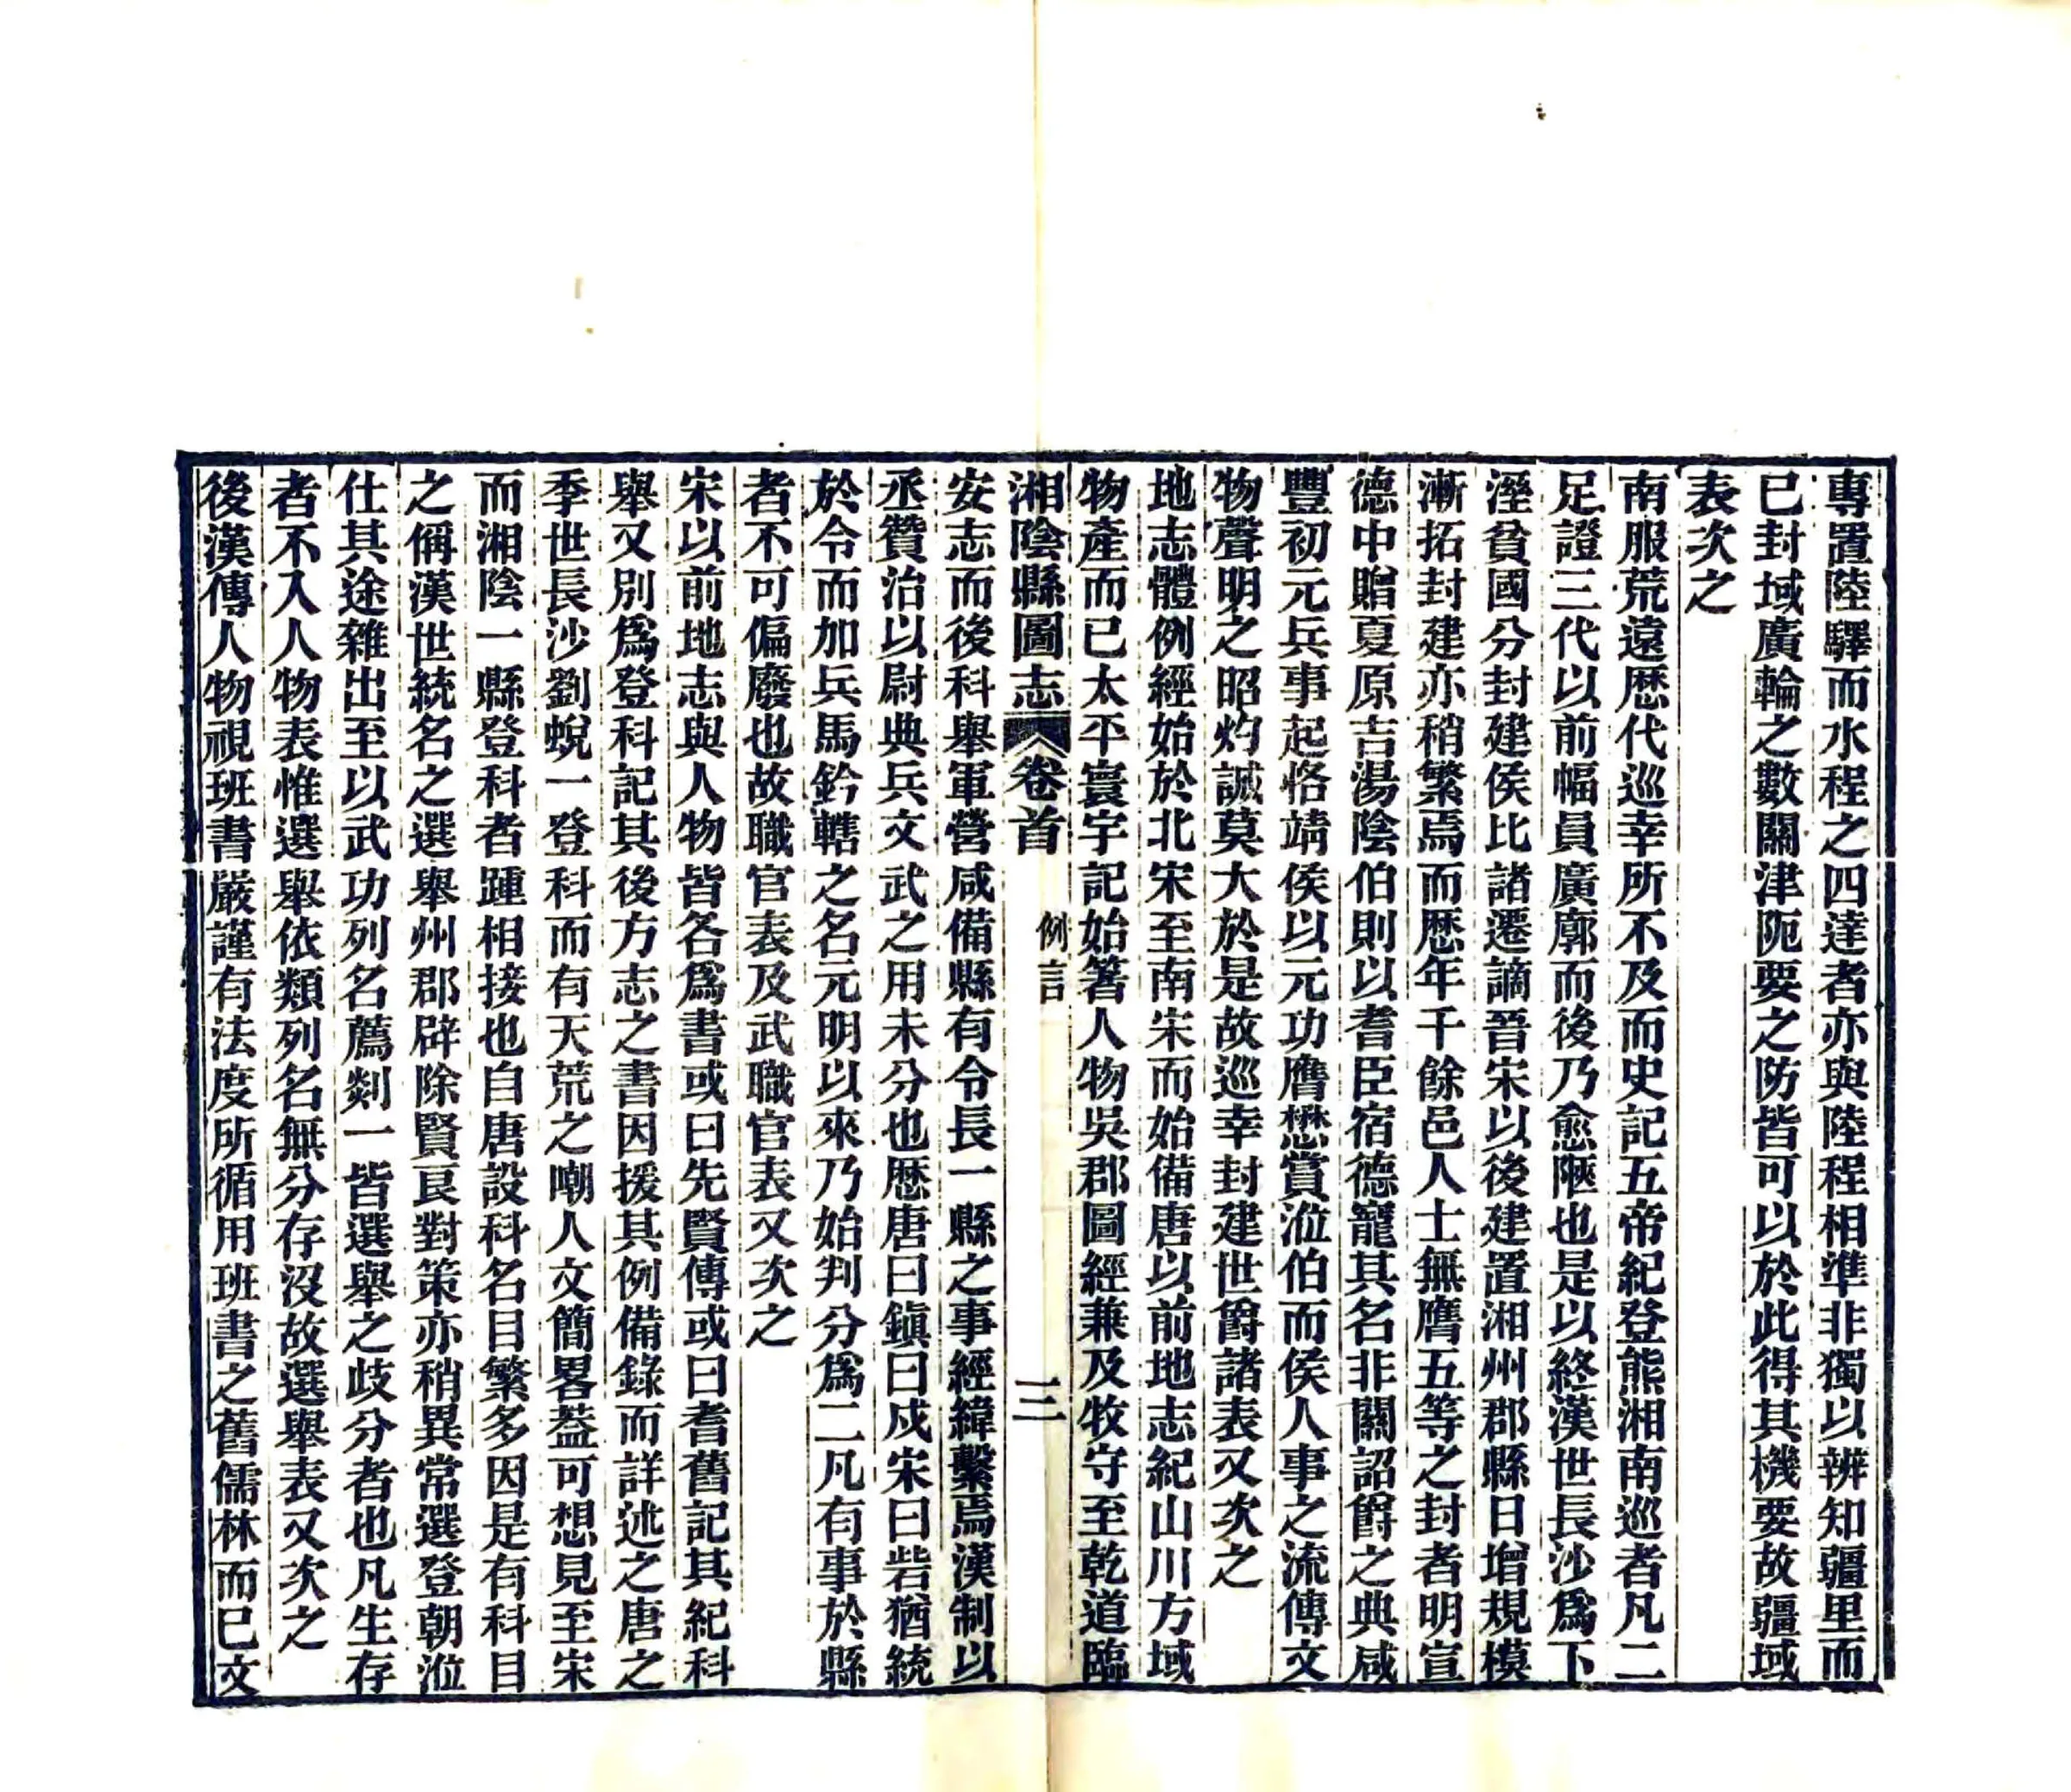 專置陸驛而水程之四達者亦與陸程相準非獨以辨知疆里而
已封域廣輪之數關津阨要之防皆可以於此得其機要故疆域
表次之
南服荒遠歴代巡幸所不及而史記五帝紀登熊湘南巡者凡二
足證三代以前幅員廣廓而後乃愈陿也是以終漢世長沙爲下
溼貧國分封建侯比諸遷謫晉宋以後建置湘州郡縣日增規模
漸拓封建亦稍繁焉而歴年千餘邑人士無膺五等之封者明宣
德中贈夏原吉湯陰伯則以耆臣宿德寵其名非關詔爵之典咸
豐初元兵事起恪靖侯以元功膺懋賞涖伯而侯人事之流傳文
物聲明之昭灼誠莫大於是故巡幸封建世爵諸表又次之
地志體例經始於北宋至南宋而始備唐以前地志紀山川方域
物產而已太平寰宇記始箸人物吳郡圖經兼及牧守至乾道臨
湘陰縣圖志 卷首 例言 三
安志而後科舉軍營咸備縣有令長一縣之事經緯繫焉漢制以
丞贊治以尉典兵文武之用未分也歴唐曰鎭曰戍宋曰砦猶統
於令而加兵馬鈐轄之名元明以來乃始判分爲二凡有事於縣
者不可偏廢也故職官表及武職官表又次之
宋以前地志與人物皆各爲書或曰先賢傳或曰耆舊記其紀科
舉又別爲登科記其後方志之書因援其例備錄而詳述之唐之
季世長沙劉蛻一登科而有天荒之嘲人文簡畧葢可想見至宋
而湘陰一縣登科者踵相接也自唐設科名目繁多因是有科目
之偁漢世統名之選舉州郡辟除賢良對策亦稍異常選登朝涖
仕其途雜出至以武功列名薦剡一皆選舉之歧分者也凡生存
者不入人物表惟選舉依類列名無分存沒故選舉表又次之
後漢傳人物視班書嚴謹有法度所循用班書之舊儒林而已文